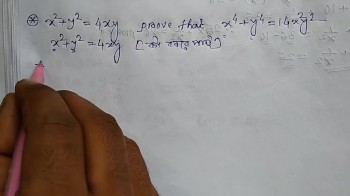 ⊛ x²+y² = 4xy prove that x⁴+y⁴ = 14x²y²
x²+y² = 4xy (को वर्ग करने पर)